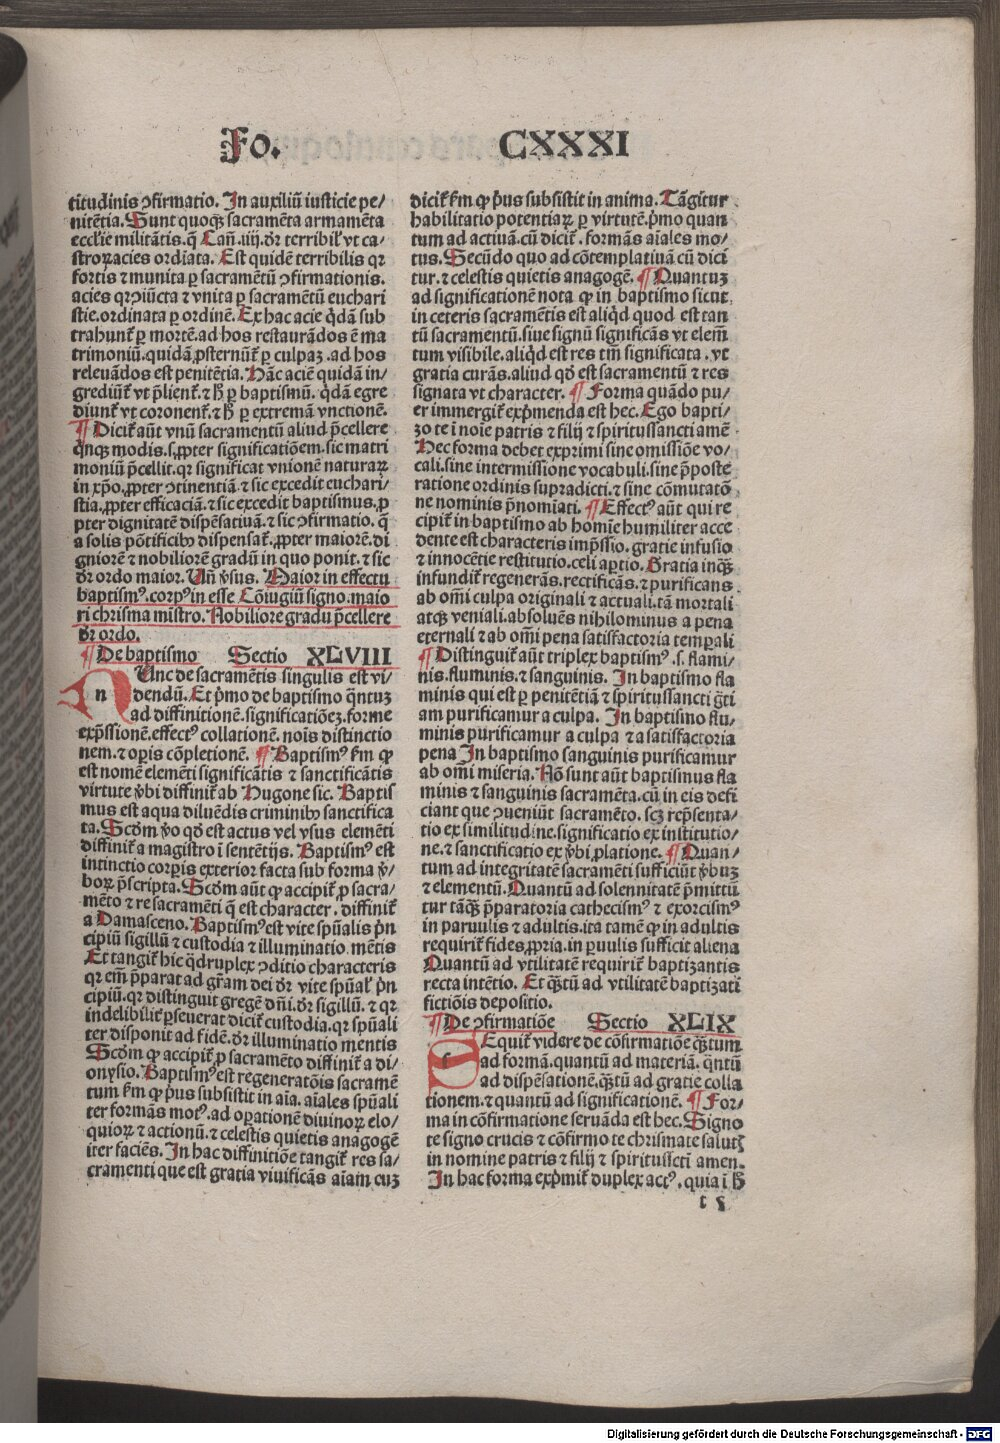 Fo. CXXXI
titudinis ꝯfirmatio. In auxiliū iusticie pe/
nitētia. Sunt quoqꝫ sacramēta armamēta
eccl'ie militātis. q̄ Cañ. iiij. dr̄ terribil' vt ca/
stroꝝ acies ordiata. Est quidē terribilis qꝛ
fortis ⁊ munita ꝑ sacramētū ꝯfirmationis.
acies qꝛ ꝯiūcta ⁊ vnita ꝑ sacramētū euchari
stie. ordinata ꝑ ordinē. Ex hac acie q̇dā sub
trahunt̄ ꝑ mortē. ad hos restaurādos ē ma
trimoniū. quidā ꝓsternūt̄ ꝑ culpaꝫ. ad hos
releuādos est penitētia. Hāc aciē quidā in/
grediūt̄ vt p̄lient̄. ⁊ ħ ꝑ baptismū. q̇dā egre
diunt̄ vt coronent̄. ⁊ ħ ꝑ extremā vnctionē.
¶ Dicit̄ aūt vnū sacramentū aliud p̄cellere
q̇nqꝫ modis. s. ꝓpter significatiōem. sic matri
moniū p̄cellit. qꝛ significat vnionē naturaꝝ
in xp̄o. ꝓpter ꝯtinentiā. ⁊ sic excedit euchari/
stia. ꝓpter efficaciā. ⁊ sic excedit baptismus. ꝓ
pter dignitatē dispēsatiuā. ⁊ sic ꝯfirmatio. q̄
a solis pōtificibꝰ dispensat̄. ꝓpter maiorē. di
gniorē ⁊ nobiliorē gradū in quo ponit. ⁊ sic
dr̄ ordo maior. Vñ v̓sus. Maior in effectu
baptismꝰ. corpꝰ in esse Cōiugiū signo. maio
ri chrisma mīstro. Nobiliore gradu p̄cellere
dr̄ ordo.
¶ De baptismo Sectio XLVIII
Nunc de sacramētis singulis est vi/
dendū. Et p̓mo de baptismo q̄ntuꝫ
ad diffinitionē. significatiōeꝫ. forme
exp̄ssionē. effectꝰ collationē. nois distinctio
nem. ⁊ opis cōpletionē. ¶ Baptismꝰ fm ꝙ
est nomē elemēti significātis ⁊ sanctificātis
virtute v̓bi diffinit̄ ab Hugone sic. Baptis
mus est aqua diluēdis criminibꝰ sanctifica
ta. Scdm v̓o qd̓ est actus vel vsus elemēti
diffinit̄ a magistro ī sentētijs. Baptismꝰ est
intinctio corꝑis exterior facta sub forma v̓/
boꝝ p̄scripta. Scdm aūt ꝙ accipit̄ ꝓ sacra/
mēto ⁊ re sacramēti q̄ est character. diffinit̄
a Damasceno. Baptismꝰ est vite spūalis pn̄
cipiū sigillū ⁊ custodia ⁊ illuminatio mētis
Et tangit̄ hic q̇druplex ꝯditio characteris
qꝛ em̄ p̄parat ad gr̄am dei dr̄ vite spūal' pn̄
cipiū. qꝛ distinguit gregē dn̄i. dr̄ sigillū. ⁊ qꝛ
indelibilit̄ ꝑseuerat dicit̄ custodia. qꝛ spūali
ter disponit ad fidē. dr̄ illuminatio mentis
Scdm ꝙ accipit̄ ꝓ sacramēto diffinit̄ a di/
onysio. Baptismꝰ est regeneratōis sacramē
tum fm ꝙ p̓us subsistit in aīa. aīales spūali
ter formās motꝰ. ad oꝑationē diuinoꝝ elo/
quioꝝ ⁊ actionū. ⁊ celestis quietis anagogē
iter faciēs. In hac diffinitiōe tangit̄ res sa/
cramenti que est gratia viuificās aīam cuꝫ
dicit̄ fm ꝙ p̓us subsistit in anima. Tāgit̄ur
habilitatio potentiaꝝ ꝑ virtutē. p̓mo quan
tum ad actiuā. cū dicit̄. formās aīales mo/
tus. Secūdo quo ad cōtemplatiuā cū dici
tur. ⁊ celestis quietis anagogē. ¶ Quantuꝫ
ad significationē nota ꝙ in baptismo sicut
in ceteris sacramētis est aliq̇d quod est tan
tū sacramentū. siue signū significās vt elem̄
tum visibile. aliq̇d est res tm̄ significata. vt
gratia curās. aliud qd̓ est sacramentū ⁊ res
signata vt character. ¶ Forma quādo pu/
er immergit̄ exp̓menda est hec. Ego bapti/
zo te ī noīe patris ⁊ filij ⁊ spiritussancti amē
Hec forma debet exprimi sine omissiōe vo/
cali. sine intermissione vocabuli. sine p̄poste
ratione ordinis supradicti. ⁊ sine cōmutatō
ne nominis p̄nomīati. ¶ Effectꝰ aūt qui re
cipit̄ in baptismo ab homīe humiliter acce
dente est characteris imp̄ssio. gratie infusio
⁊ innocētie restitutio. celi aꝑtio. Gratia inqꝫ
infundit̄ regenerās. rectificās. ⁊ purificans
ab om̄i culpa originali ⁊ actuali. tā mortali
atqꝫ veniali. absoluēs nihilominus a pena
eternali ⁊ ab om̄i pena satisfactoria temꝑali
¶ Distinguit̄ aūt triplex baptismꝰ. s. flami/
nis. fluminis. ⁊ sanguinis. In baptismo fla
minis qui est ꝑ penitētiā ⁊ spiritussancti gr̄ti
am purificamur a culpa. In baptismo flu/
minis purificamur a culpa ⁊ a satisfactoria
pena In baptismo sanguinis purificamur
ab om̄i miseria. Nō sunt aūt baptismus fla
minis ⁊ sanguinis sacramēta. cū in eis defi
ciant que ꝯueniūt sacramēto. scꝫ rep̄senta/
tio ex similitudine. significatio ex institutio/
ne. ⁊ sanctificatio ex v̓bi ꝓlatione. ¶ Quan/
tum ad integritatē sacramēti sufficiūt v̓buꝫ
⁊ elementū. Quantū ad solennitatē p̄mittū
tur tāqꝫ p̄paratoria cathecismꝰ ⁊ exorcismꝰ
in paruulis ⁊ adultis. ita tamē ꝙ in adultis
requirit̄ fides ꝓpria. in ꝑuulis sufficit aliena
Quantū ad vtilitatē requirit̄ baptizantis
recta intētio. Et qꝫtū ad vtilitatē baptizati
fictiōis depositio.
¶ De ꝯfirmatiōe Sectio XLIX
SEquit̄ videre de cōfirmatiōe qꝫtum
ad formā. quantū ad materiā. q̄ntū
ad dispēsationē. qꝫtū ad gratie colla
tionem. ⁊ quantū ad significationē. ¶ For/
ma in cōfirmatione seruāda est hec. Signo
te signo crucis ⁊ cōfirmo te chrismate salutꝭ
in nomine patris ⁊ filij ⁊ spiritussctī amen.
In hac forma exp̓mit̄ duplex actꝰ. quia ī ħ
Digitalisierung gefördert durch die Deutsche Forschungsgemeinschaft - DFG